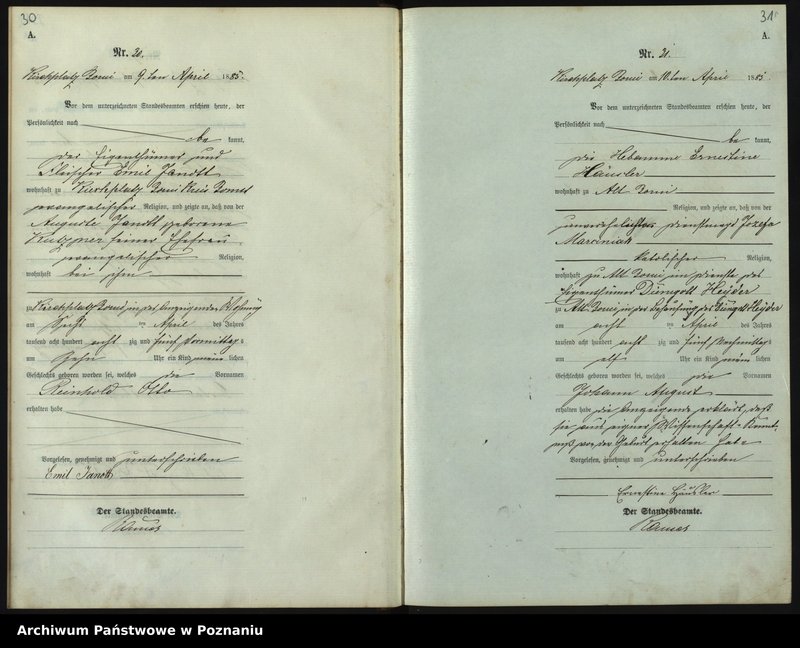 30
A.
Nr. 20.
Kirchplatz Borui am 9. ten April 1885.
Vor dem unterzeichneten Standesbeamten erschien heute, der
Persönlichkeit nach
be kannt,
der Eigenthümer und
Fleischer Emil Jandtt
wohnhaft zu Kirchplatz Borui Kreis Bomst
evangelischer Religion, und zeigte an, daß von der
Auguste Jandtt geborene
Kutzner seiner Ehefrau
evangelischer Religion,
wohnhaft bei ihm
zu Kirchplatz Borui, in des Anzeigenden Wohnung
am acht ten April des Jahres
tausend acht hundert acht zig und fünf Vormittags
um zehn Uhr ein Kind männ lichen
Geschlechts geboren worden sei, welches die Vornamen
Reinhold Otto
erhalten habe
Vorgelesen, genehmigt und unterschrieben
Emil Jandtt
Der Standesbeamte.
31
A.
Nr. 21.
Kirchplatz Borui am 10. ten April 1885.
Vor dem unterzeichneten Standesbeamten erschien heute, der
Persönlichkeit nach
be kannt,
die Hebamme Ernestine
Häusler
wohnhaft zu Alt Borui
Religion, und zeigte an, daß von der
unverehelichten Dienstmagd Jozefa
Marciniak
katolischer Religion,
wohnhaft zu Alt Borui, im Dienste des
Eigenthümer Heyder
zu Alt Borui, in der Behausung des Heyder
am acht ten April des Jahres
tausend acht hundert acht zig und fünf Nachmittags
um elf Uhr ein Kind männ lichen
Geschlechts geboren worden sei, welches die Vornamen
Johann August
erhalten habe die Anzeigende erklärt, daß
sie aus eigner Wissenschaft Kennt-
niß von der Geburt erhalten habe
Vorgelesen, genehmigt und unterschrieben
Ernestine Häusler
Der Standesbeamte.
Archiwum Państwowe w Poznaniu